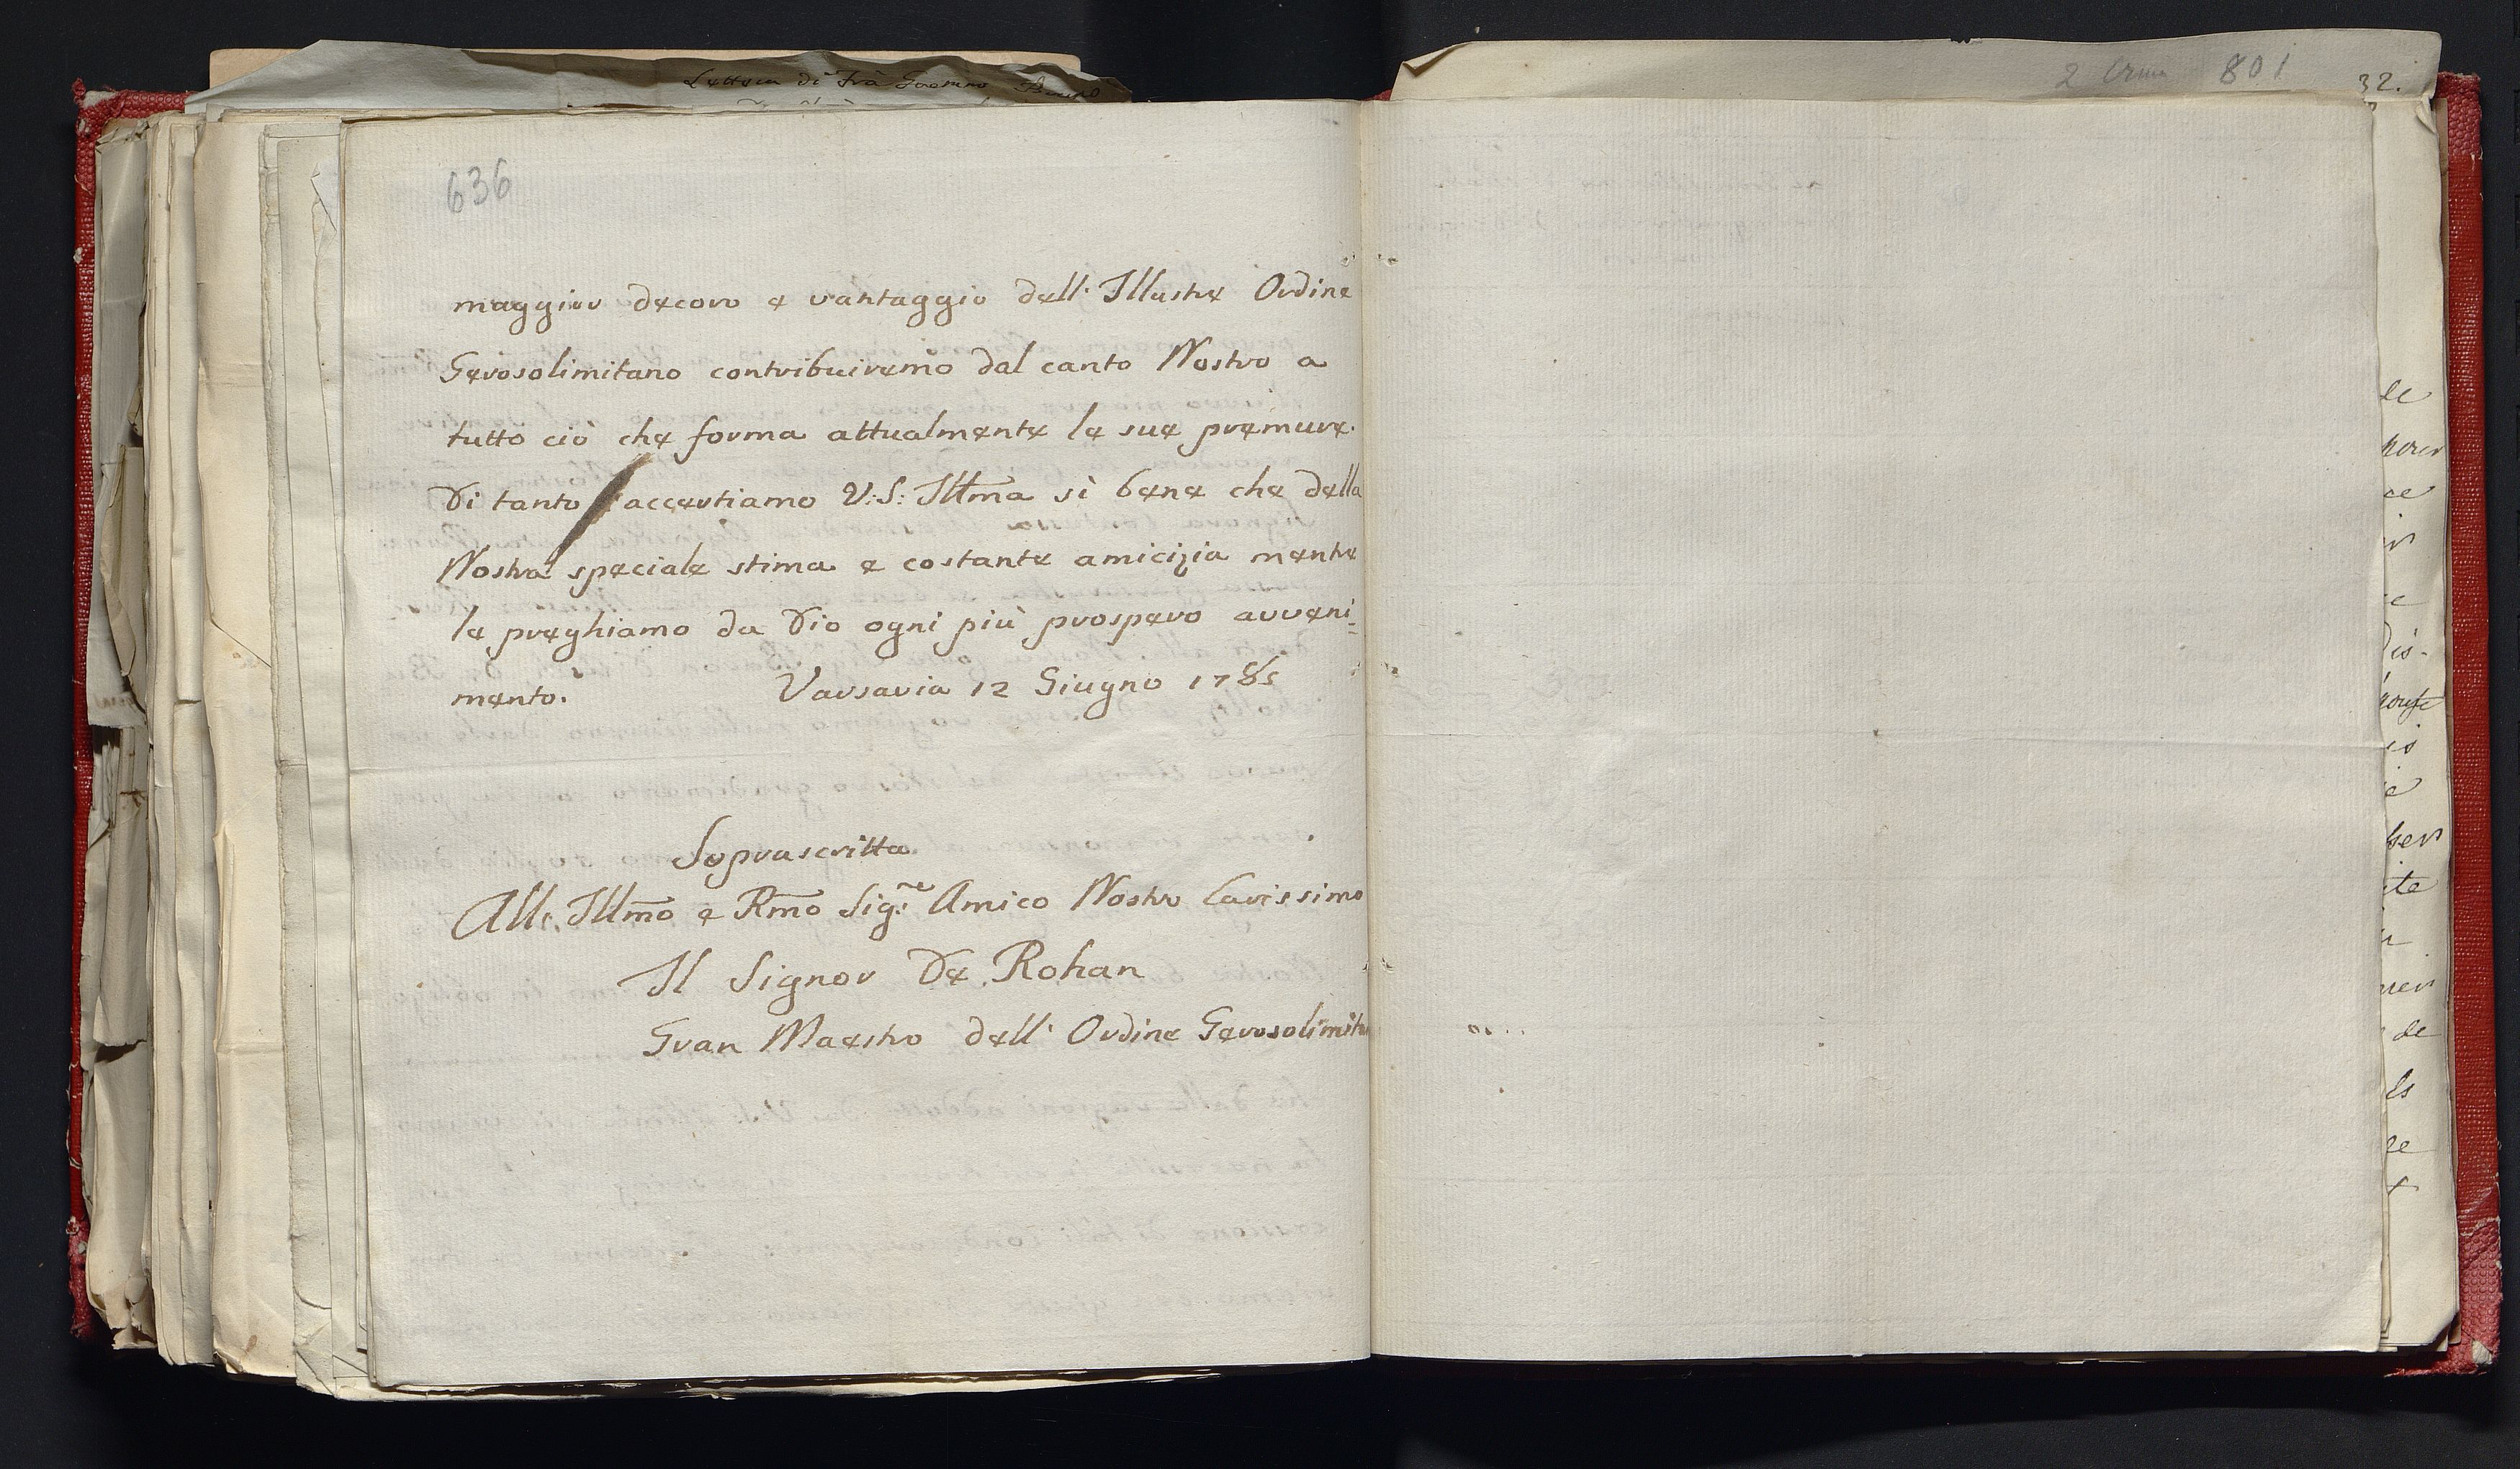 Lettera di frà Gaetano Bruno
2 801
32.
636
maggior decoro e vantaggio dell' Illustre Ordine
Gerosolimitano contribuiremo dal canto Nostro a
tutto ciò che forma attualmente le sue premure.
Di tanto accertiamo V:S: Illma sì bene che della
Nostra speciale stima e costante amicizia mentre
le preghiamo da Dio ogni più prospero avveni=
mento. Varsavia 12 Giugno 1785
Soprascritta
All' Illmo e Rmo Sigre Amico Nostro Carissimo
Il Signor De Rohan
Gran Maestro dell' Ordine Gerosolimit
de
ce
dis-
is
ite
de
ls